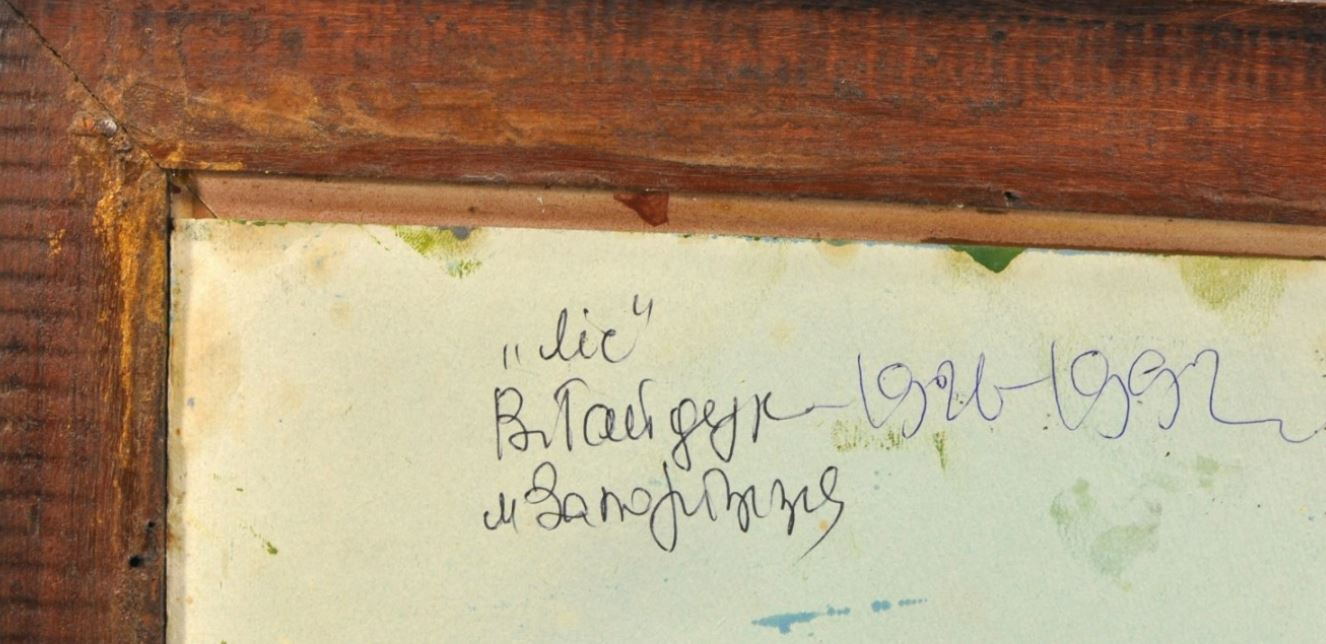 „Ліс"
В. Гайдук - 1926-1992
м Запоріжжя